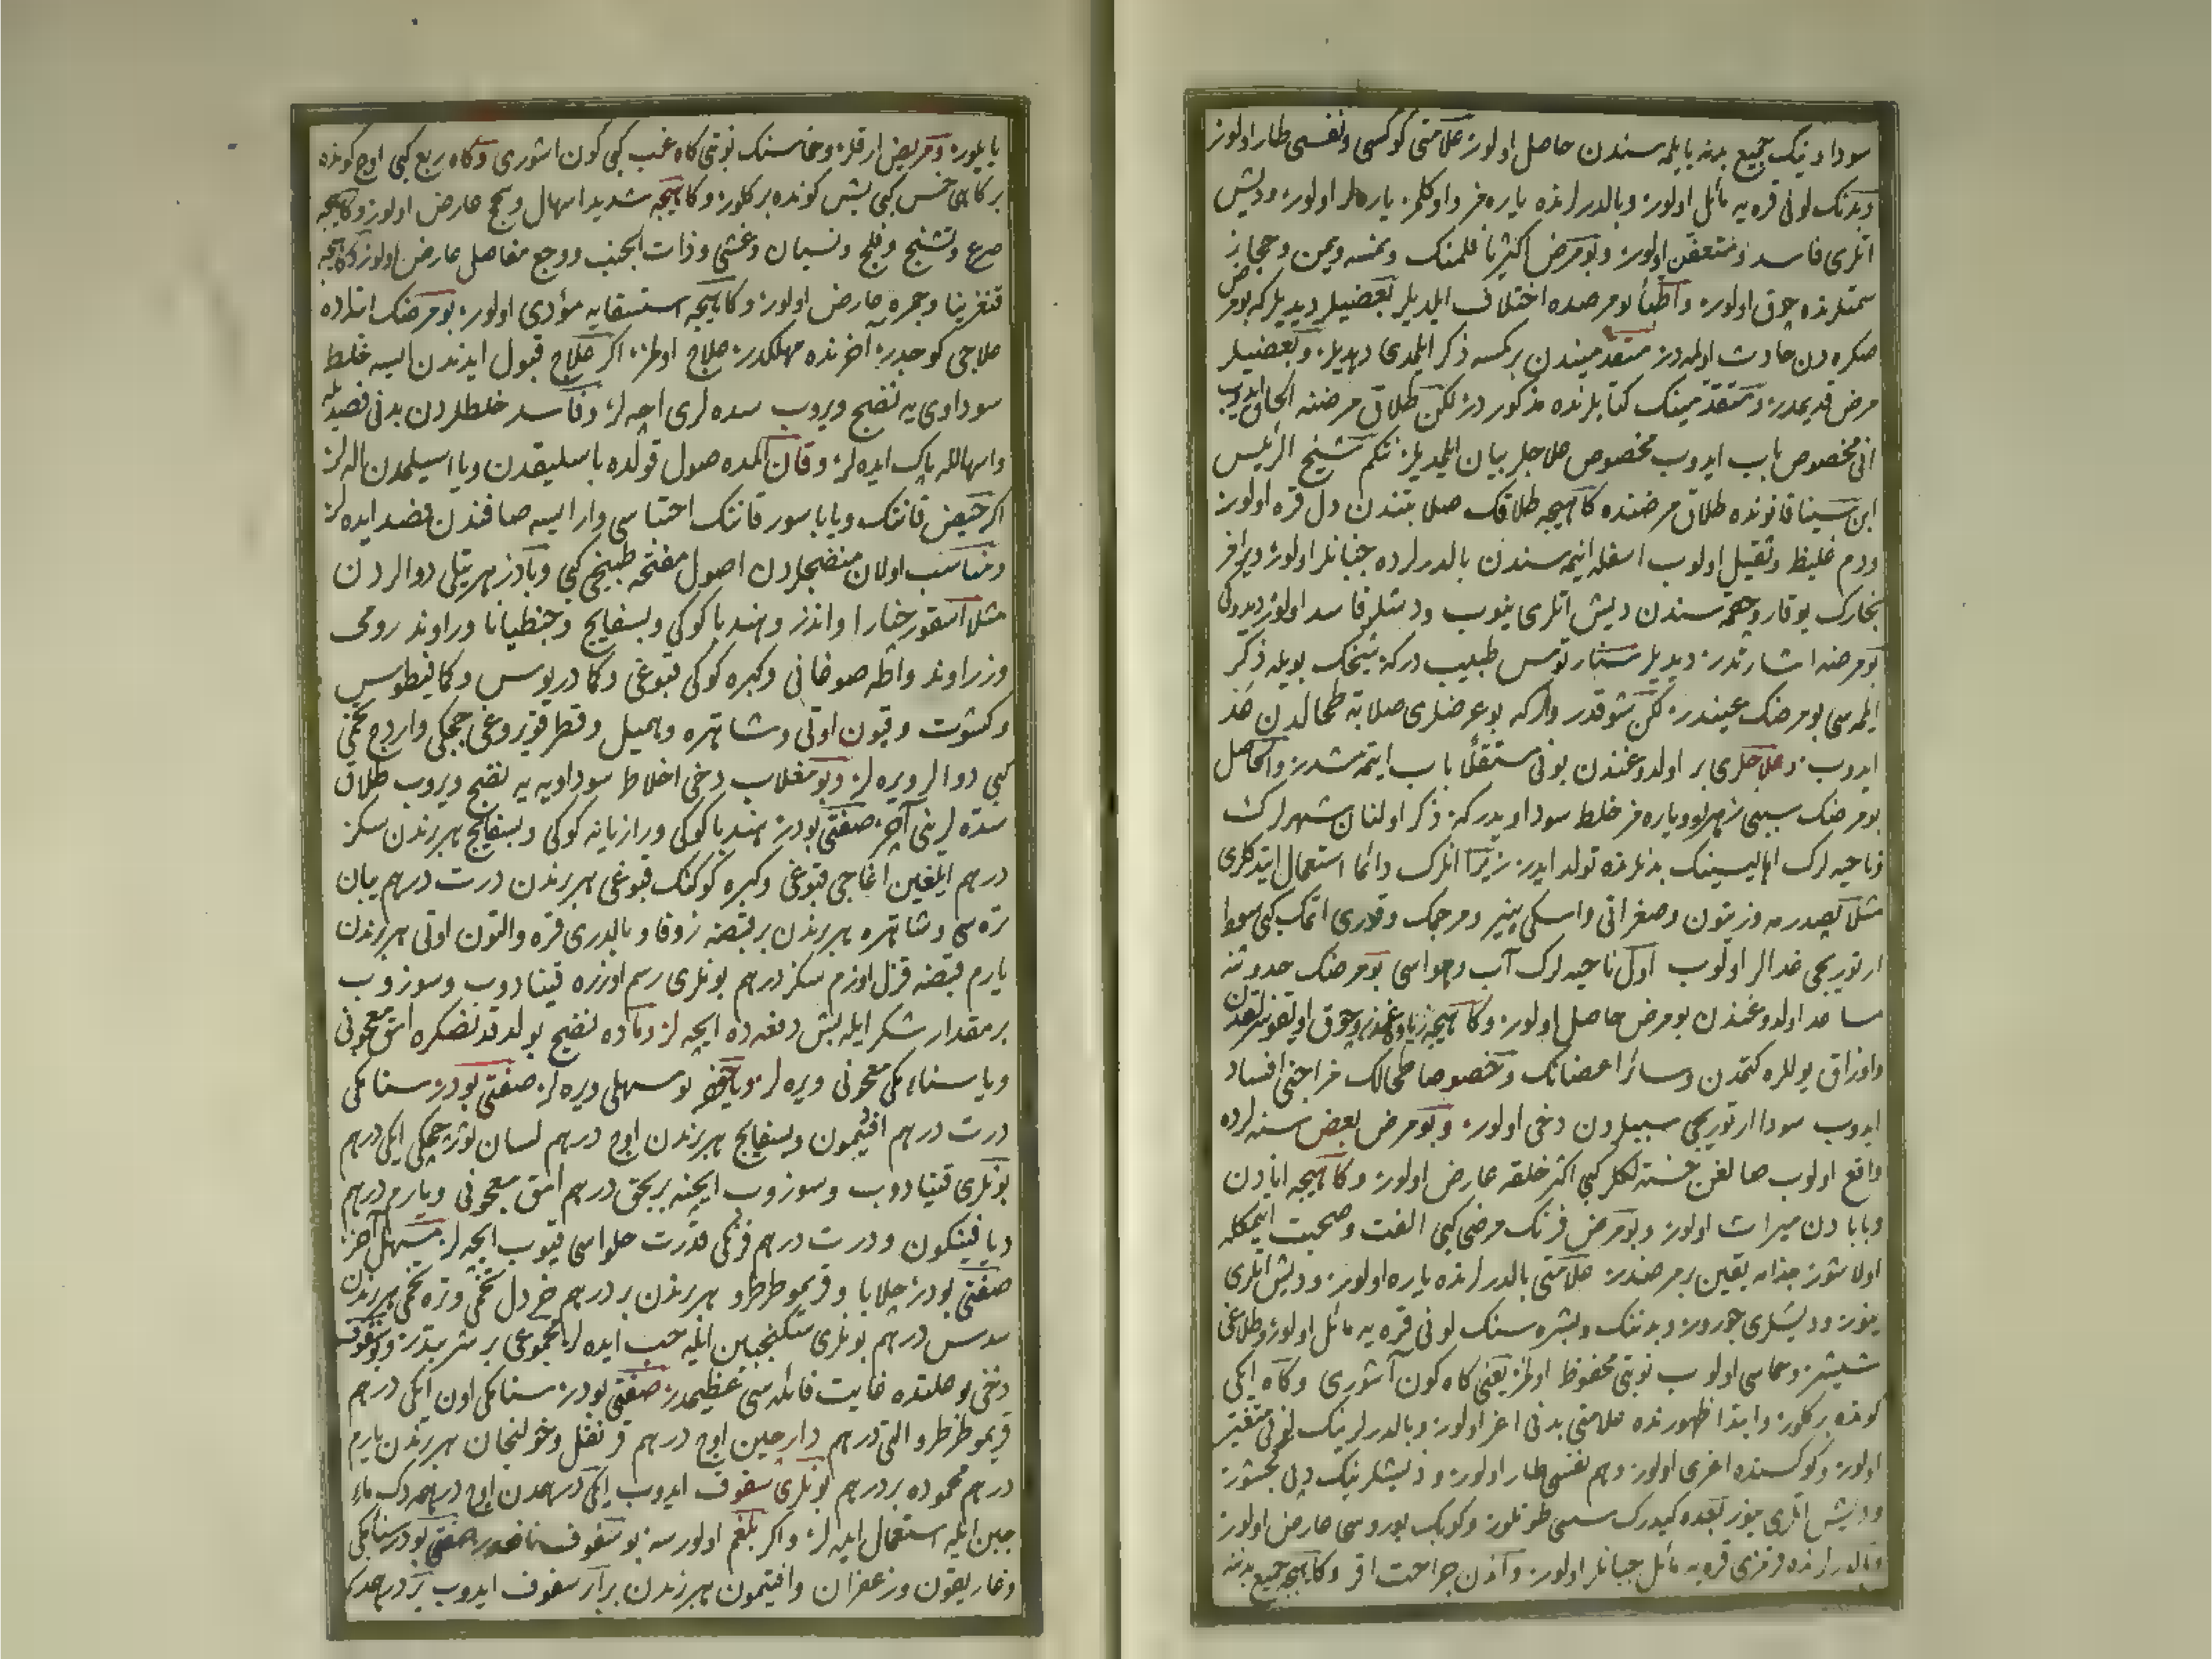 سودا دینک جمیع بدنه یایلمه سندن حاصل اولور علامتی کوکسی ونفسی طار اولور
وبدنک لونی قره یه مائل اولور وبالدرلرنده یاره لر اولور ودیش
اتلری فاسد ومتعفن اولور وبو مرض اکثریا فلمنک ونمسه ویمن وحجاز
سمتلرنده چوق اولور واطبا بو مرضده اختلاف ایلدیلر بعضیلر دیدیلرکه بو مرض
صکره دن حادث اولمه در متقدمیندن بر کمسه ذکر ایلمدی دیدیلر وبعضیلر
مرض قدیمدر ومتقدمینک کتابلرنده مذکور در لکن طلاق مرضنه الحاق ایدوب
انی مخصوص باب ایدوب مخصوص علاجلر بیان ایلمدیلر نتکم شیخ الرئیس
ابن سینا قانونده طلاق مرضنده کاهیجه طلاقک صلابتندن دل قره اولور
ودم غلیظ وثقیل اولوب اسفله اینمه سندن بالدرلرده چبانلر اولور
بخارک یوقارو چقمه سندن دیش اتلری ینوب ودیشلر فاسد اولور دیدوکی
بو مرضه اشارتدر دیدیلر سنارتوس طبیب درکه شیخک بویله ذکر
ایلمه سی بو مرضک عینیدر لکن شو قدر وارکه بو عرضلری صلابة طحالدن عد
ایدوب وعلاجلری بر اولدوغندن بونی مستقلا باب ایتمه مشدر والحاصل
بو مرضک سببی زهرلو ویاره مز خلط سوداویدرکه ذکر اولنان شهرلرک
وناحیه لرک اهالیسینک بدنلرنده تولد ایدر زیرا انلرک دائما استعمال ایتدکلری
مثلا پصدرمه وزیتون وصغر اتی واسکی پینیر ومرجمک وقوری اتمک کبی سودا
ارتوریجی غدالر اولوب اول ناحیه لرک آب وهواسی بو مرضک حدوثنه
مساعد اولدوغندن بو مرض حاصل اولور وکاهیجه زیاده غمدن وچوق اویقوسزلقدن
واوزاق یوللره کتمدن وسائر اعضانک وخصوصا طحالک مزاجنی افساد
ایدوب سودا ارتوریجی سببلردن دخی اولور وبو مرض بعض سنه لرده
واقع اولوب صالغن خسته لکلر کبی اکثر خلقه عارض اولور وکاهیجه انادن
وبابادن میراث اولور وبو مرض فرنک مرضی کبی الفت وصحبت ایتمکله
اولاشور جذامه یقین بر مرضدر علامتی بالدرلرنده یاره اولور ودیش اتلری
ینور ودیشلری چورور وبدننک وبشره سنک لونی قره یه مائل اولور وطلاغی
شیشر وحماسی اولوب نوبتی محفوظ اولمز یعنی کاه کون آشوری وکاه ایکی
کونده بر کلور وابتدا ظهورنده علامتی بدنی اغر اولور وبالدرلرینک لونی متغیر
اولور وکوکسنده اغری اولور وهم نفسی طار اولور ودیشلرینک دیبی کجشور
ودیش اتلری ینور بعده کیدرک سسی طوتلور وکوپک یوروسی عارض اولور
وبالدرلرنده قرمزی قره یه مائل چبانلر اولور واندن جراحت اقر وکاهیجه جمیع بدننه
یایلور ومریض ارقلر وحماسنک نوبتی کاه غب کبی کون اشوری وکاه ربع کبی اوچ کونده
بر کاهی خمس کبی بش کونده بر کلور وکاهیجه شدید اسهال وسحج عارض اولور وکاهیجه
صرع وتشنج وفلج ونسیان وغشی وذات الجنب ووجع مفاصل عارض اولور وکاهیجه
قنغرینا وجمره عارض اولور وکاهیجه استسقایه مؤدی اولور بو مرضک ابتداده
علاجی کوجدر آخرنده مهلکدر علاج اولمز اکر علاج قبول ایدندن ایسه خلط
سوداوی یه نضج ویروب سده لری اچه لر وفاسد خلطلردن بدنی فصد ایله
واسهالله پاک ایده لر وقان المده صول قولده باسلیقدن ویا اسیلمدن اله لر
اکر حیض قاننک ویا باسور قاننک احتباسی وارایسه صافندن فصد ایده لر
ومناسب اولان منضجلردن اصول مفتحه طبیخی کبی وپادزهریتلی دوالردن
مثلا اسقورجنارا واندز وهندبا کوکی وبسفایج وجنطیانا وراوند رومی
وزراوند واطه صوغانی وکبره کوکی قبوغی وکمادریوس وکمافیطوس
وکشوت وقیون اوتی وشاهتره وهمیل وقطر قویروغی چچکی واردج تخمی
کبی دوالر ویره لر وبو مغلاب دخی اخلاط سوداویه یه نضج ویروب طلاق
سده لرینی آچر صفتی بودر هندبا کوکی ورازیانه کوکی وبسفایج هر برندن سکز
درهم ایلغین اغاجی قبوغی وکبره کوکنک قبوغی هر برندن درت درهم یبان
تره سی وشاهتره هر برندن بر قبضه زوفا وبالدری قره والتون اوتی هر برندن
یارم قبضه قزل اوزم سکز درهم بونلری رسم اوزره قینادوب وسوزوب
بر مقدار شکر ایله بش دفعه ده ایچه لر وماده نضج بولدقدنصکره امق معجونی
ویا سناء مکی معجونی ویره لر ویاخود بو مسهلی ویره لر صفتی بودر سنا مکی
درت درهم افتیمون وبسفایج هر برندن اوچ درهم لسان ثور چچکی ایکی درهم
بونلری قینادوب وسوزوب ایچنه بر بچق درهم امق معجونی ویارم درهم
دیافینکون ودرت درهم فرنکی قدرت حلواسی قیوب ایچه لر مسهل آخر
صفتی بودر جلابا وقریموطرطرو هر برندن بر درهم خردل تخمی وتره تخمی هر برندن
سدس درهم بونلری سکنجبین ایله حب ایده لر مجموعی بر شربتدر وبو سفوف
دخی بو علتده غایت فائده سی عظیمدر صفتی بودر سنا مکی اون ایکی درهم
قریموطرطرو التی درهم دارچین اوچ درهم قرنفل وخولنجان هر برندن یارم
درهم محموده بر درهم بونلری سفوف ایدوب ایکی درهمدن اوچ درهمه دک ماء
جبن ایله استعمال ایده لر واکر بلغم اولورسه بو سفوف نافعدر صفتی بودر سنا مکی
وغاریقون وزعفران وافتیمون هر برندن برابر سفوف ایدوب بر درهمدک